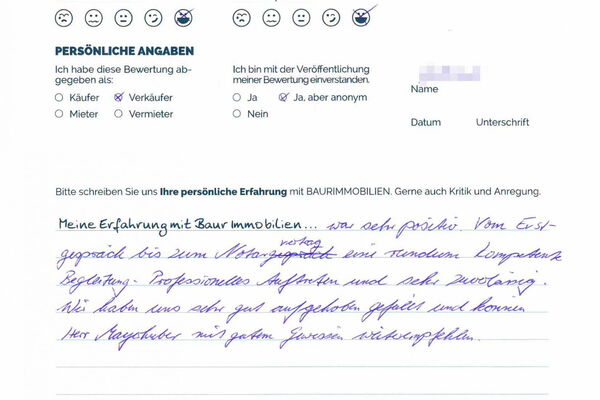 PERSÖNLICHE ANGABEN
Ich habe diese Bewertung ab-
gegeben als:
Käufer Verkäufer
Mieter Vermieter
Ich bin mit der Veröffentlichung
meiner Bewertung einverstanden.
Ja Ja, aber anonym
Nein
Name
Datum Unterschrift
Bitte schreiben Sie uns Ihre persönliche Erfahrung mit BAURIMMOBILIEN. Gerne auch Kritik und Anregung.
Meine Erfahrung mit Baur Immobilien... war sehr positiv. Vom Erst-
gespräch bis zum Notarvertrag eine rundum kompetente
Begleitung. Professionelles Auftreten und sehr zuverlässig.
Wir haben uns sehr gut aufgehoben gefühlt und können
Herr Mayrhuber mit gutem Gewissen weiterempfehlen.